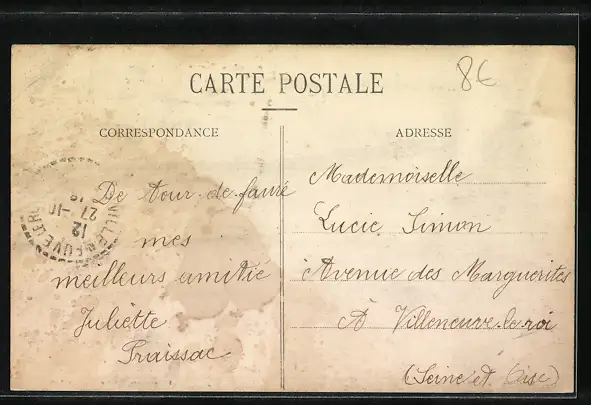 8€
CARTE POSTALE
CORRESPONDANCE
ADRESSE
De tour-de-faure
mes
meilleurs amitié
Juliette
Praissac
Mademoiselle
Lucie Simon
Avenue des Marguerites
A Villeneuve-le-roi
(Seine et Oise)
12
27-10